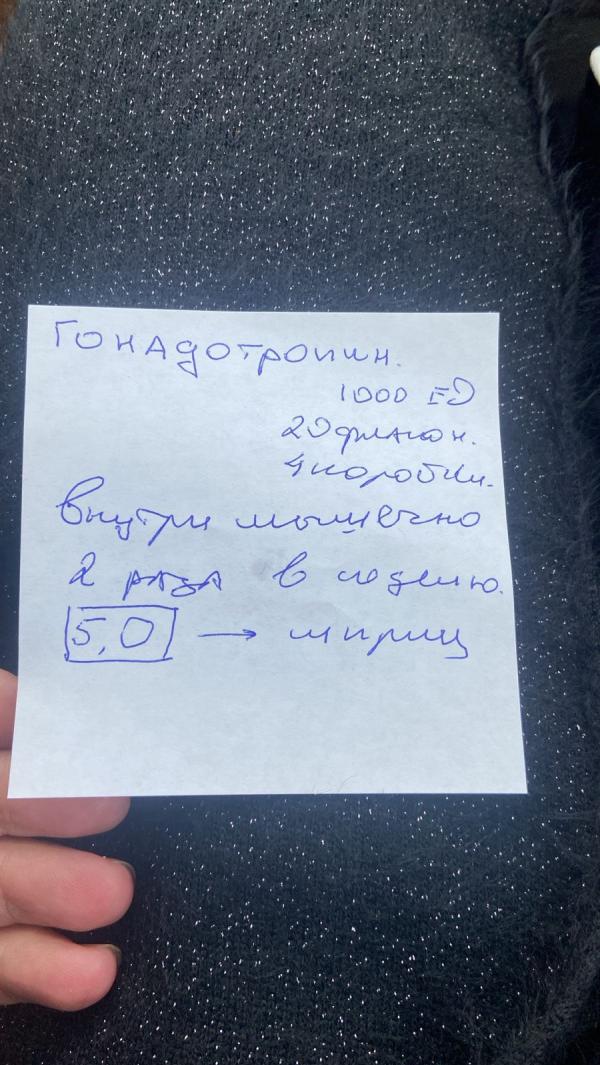 Гонадотропин.
1000 ЕД
20 флакон.
4 коробки.
внутри мышечно
2 раза в неделю.
5,0 → шприц